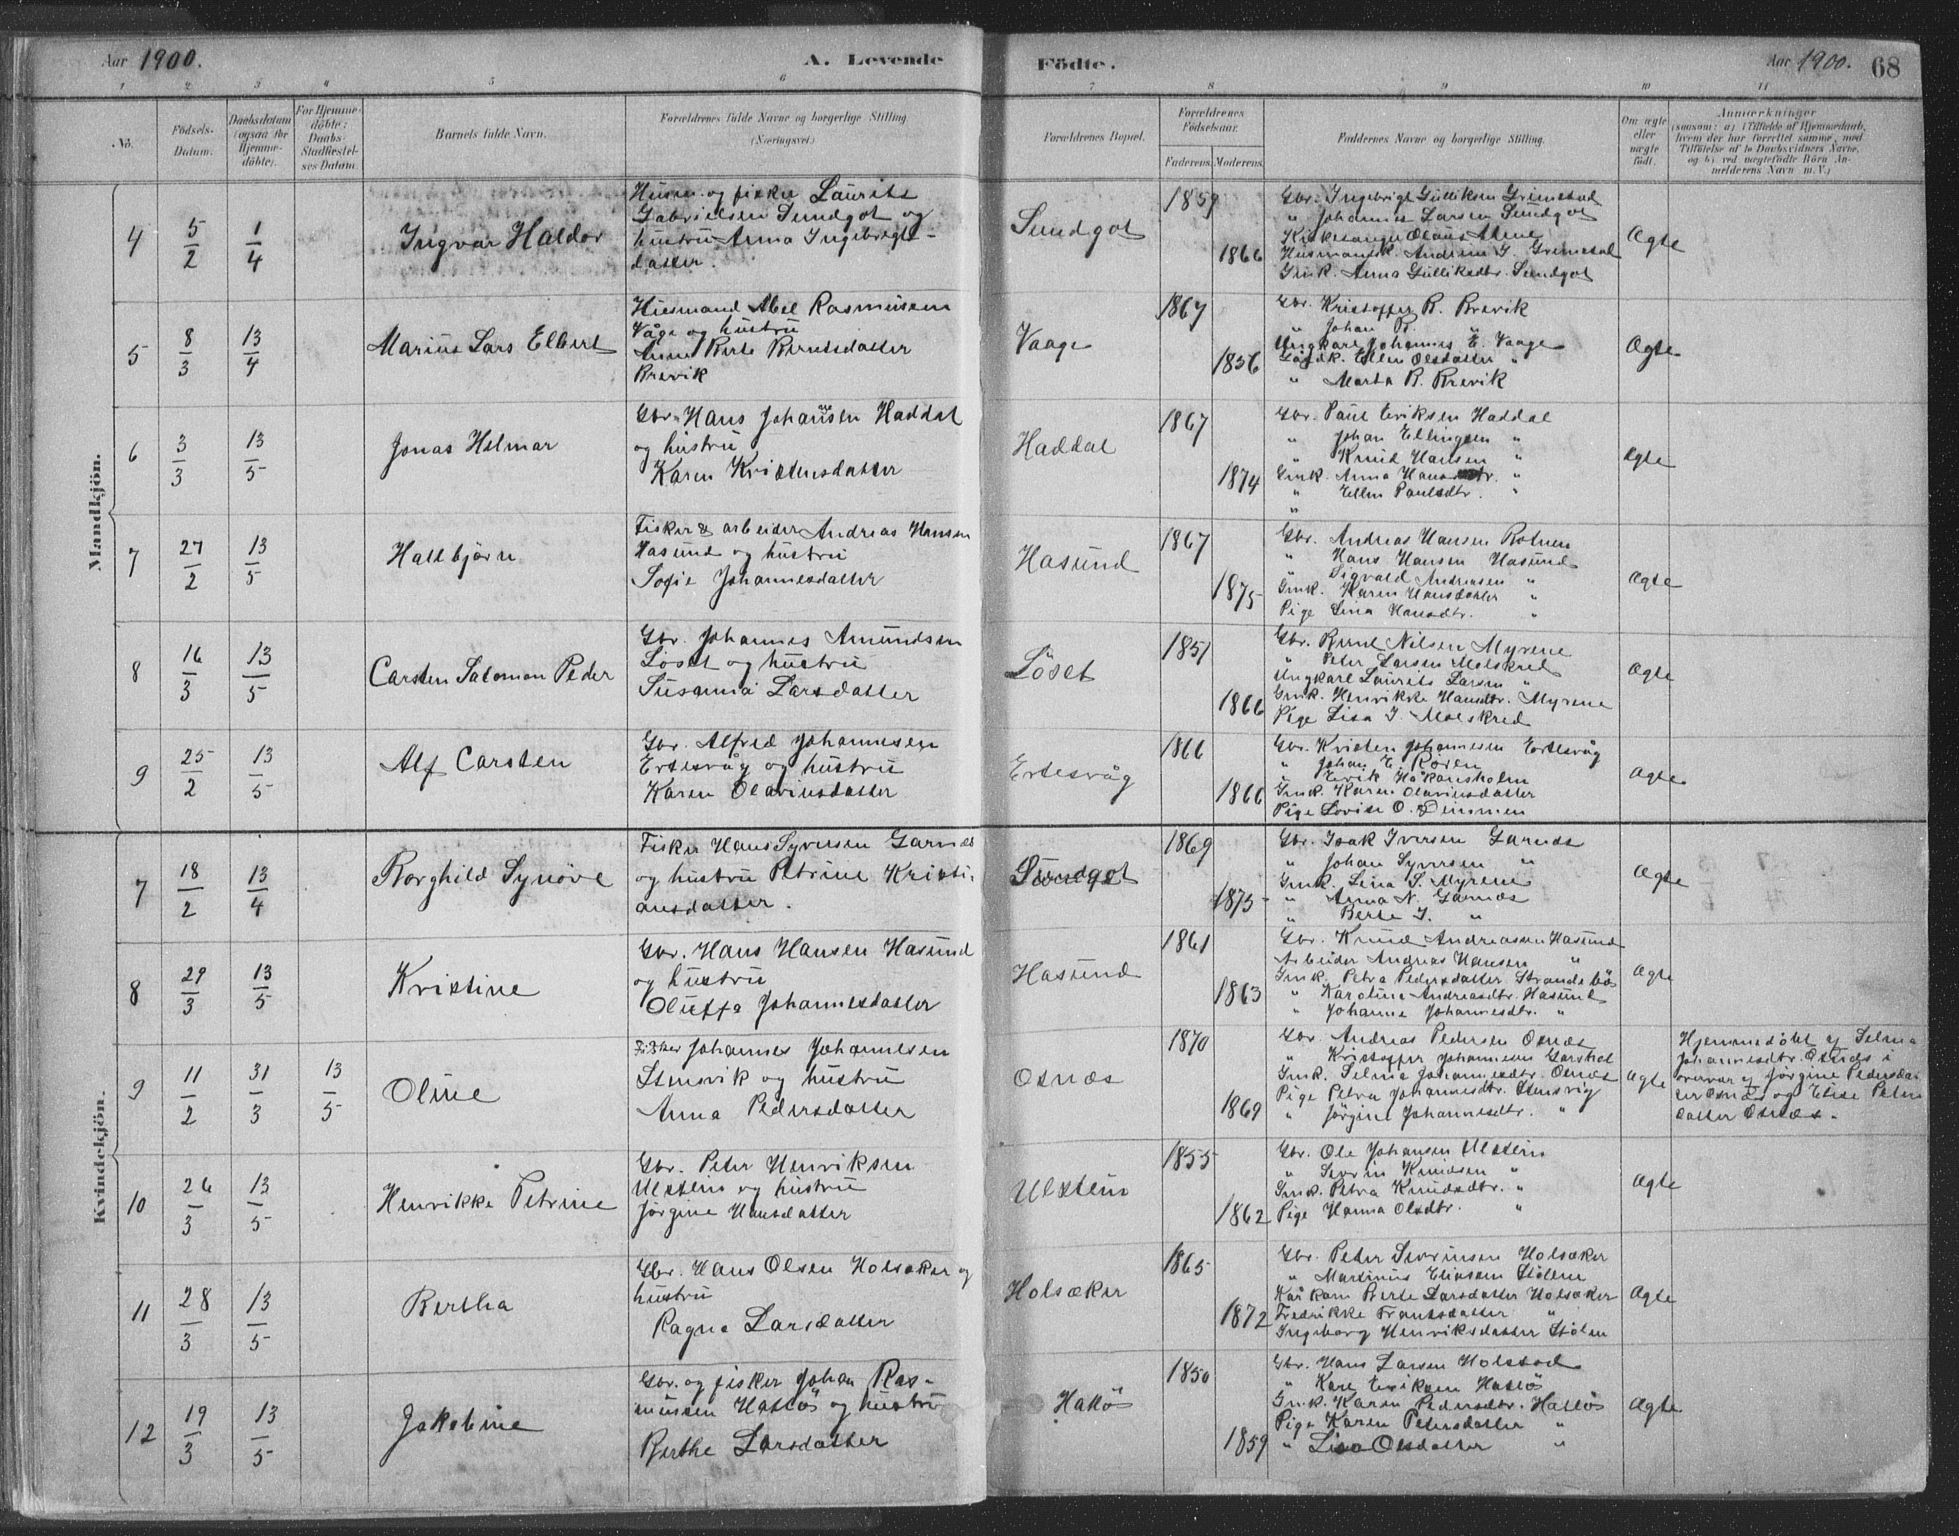 Aar 1900.
A. Levende
Födte.
Aar 1900. 68
1 2 3 4 5 6 7 8 9 10 11
No.
Födsels-Datum.
Daabsdatum (ogsaa for Hjemmedöbte).
For Hjemmedöbte: Daabs-Stadfæstelses Datum.
Barnets fulde Navn.
Forældrenes fulde Navne og borgerlige Stilling (Næringsvei)
Forældrenes Bopæl.
Forældrenes Födselsaar.
Faderens. Moderens.
Faddernes Navne og borgerlige Stilling.
Om ægte eller uægte födt.
Anmærkninger
(saasom: a) i Tilfælde af Hjemmedaab, hvem der har forrettet samme, med Tilföielse af to Daabsvidners Navne, og b) ved uægtefödte Börn Anmelderens Navn m. V.)
Mandkjön.
4 5/2 1/4 Ingvar Haldor
Husm. og fisker Laurits
Gabrielsen Sundgot og
hustru Anna Ingebrigts-
datter.
Sundgot
1859
1866
Gbr. Ingebrigt Gulliksen Grimstad
" Johannes Larsen Sundgot
Kirkesanger Olaus
Husmandsk. Andrine J. Grimstad
Gmk. Anna Gulliksdtr. Sundgot
Ægte
5 8/3 13/4 Marius Lars Elbert
Husmand Abel Rasmusen
Våge og hustru
Anne Berte Berntsdatter
Brevik
Vaage
1867
1856
Gbr. Kristoffer B. Brevik
" Johan B. "
Ungkarl Johannes E. Vaage
Ellen Olsdatter "
" Marta B. Brevik
Ægte
6 3/3 13/5 Jonas Hilmar
Gbr. Hans Johansen Haddal
og hustru
Karen Kristensdatter
Haddal
1867
1874
Gbr. Paul Eriksen Haddal
" Johan Ellingsen "
" Knud Hansen "
Gmk. Anna Hansdtr. "
" Ellen Paulsdtr. "
"
Ægte
7 27/2 13/5 Hallbjørn
Fisker & arbeider Andreas Hansen
Hasund og hustru
Sofie Johannesdatter
Hasund
1867
1875
Gbr. Andreas Hansen Rotnen
" Hans Hansen Hasund
" Sigvald Andreasen "
Gmk. Karen Hansdatter "
Pige Lina Hansdtr. "
Ægte
8 16/3 13/5 Carsten Salomon Peder
Gbr. Johannes Amundsen
Löset og hustru
Susanna Larsdatter
Löset
1851
1866
Gbr. Bernt Nilsen Myrene
" Peter Larsen Molskred
Ungkarl Laurits Larsen "
Gmk. Henrikke Hansdtr. Myrene
Pige Lisa J. Molskred
Ægte
9 25/2 13/5 Alf Carsten
Gbr. Alfred Johannesen
Ertesvåg og hustru
Karen Olavinsdatter
Ertesvåg
1866
1866
Gbr. Kristen Johannesen Ertesvåg
" Johan E. Roren
" Eirik Håkonsholm
Gmk. Karen Olavinsdatter
Pige Lovise O. Dimmen
Ægte
Kvindekjön.
7 18/2 13/4 Borghild Synöve
Fisker Hans Syversen Garnæs
og hustru Petrine Kristi-
ansdatter.
Sundgot
1869
1873
Gbr. Isak Iversen Garnæs
" Johan Syversen "
Gmk. Lina S. Myrene
" Anna N. Garnæs
" Berte J. "
Ægte
8 29/3 13/5 Kristine
Gbr. Hans Hansen Hasund
og hustru
Oluffa Johannesdatter
Hasund
1861
1863
Gbr. Knud Andreassen Hasund
Arbeider Andreas Hansen "
Gmk. Petra Pedersdatter Strandebö
" Karoline Andreasdtr. Hasund
" Johanne Johannesdtr. "
Ægte
9 11/2 31/3 13/5 Oline
Fisker Johannes Johannesen
Stensvik og hustru
Anna Pedersdatter
Osnæs
1870
1869
Gbr. Andreas Pedersen Osnæs
" Kristoffer Johannesen Garshol
Gmk. Selma Johannesdtr. Osnæs
Pige Petra Johannesdtr. Stensvig
" Jørgine Johannesdtr. "
Ægte
Hjemmedöbt af Selma
Johannesdtr. Osnæs i
overvær af Jörgine Pedersdat
ter Osnæs og Elise Peters
datter Osnæs.
10 26/3 13/5 Henrikke Petrine
Gbr. Peter Henriksen
Ulstein og hustru
Jörgine Hansdatter
Ulstein
1855
1862
Gbr. Ole Johansen Ulstein
" Severin Knudsen "
Gmk. Petra Knudsdtr. "
Pige Hanna Olsdtr. "
Ægte
11 28/3 13/5 Bertha
Gbr. Hans Olsen Holsæker og
hustru
Ragna Larsdatter
Holsæker
1865
1872
Gbr. Peter Severinsen Holsæker
" Martinus Eliasen Stölen
Kårkone Berte Larsdatter Holsæker
Fredrikke Frantsdatter "
Ingeborg Henriksdatter Stölen
Ægte
12 19/3 13/5 Jakobine
Gbr. og fisker Johan Ras-
mussen Hatlö og hustru
Berthe Larsdatter
Hatlö
1850
1859
Gbr. Hans Larsen Holstad
" Karl Eriksen Hatlö
Gmk. Karen Pedersdtr. Hatlö
Pige Karen Petersdatter "
" Lisa Olsdatter "
Ægte